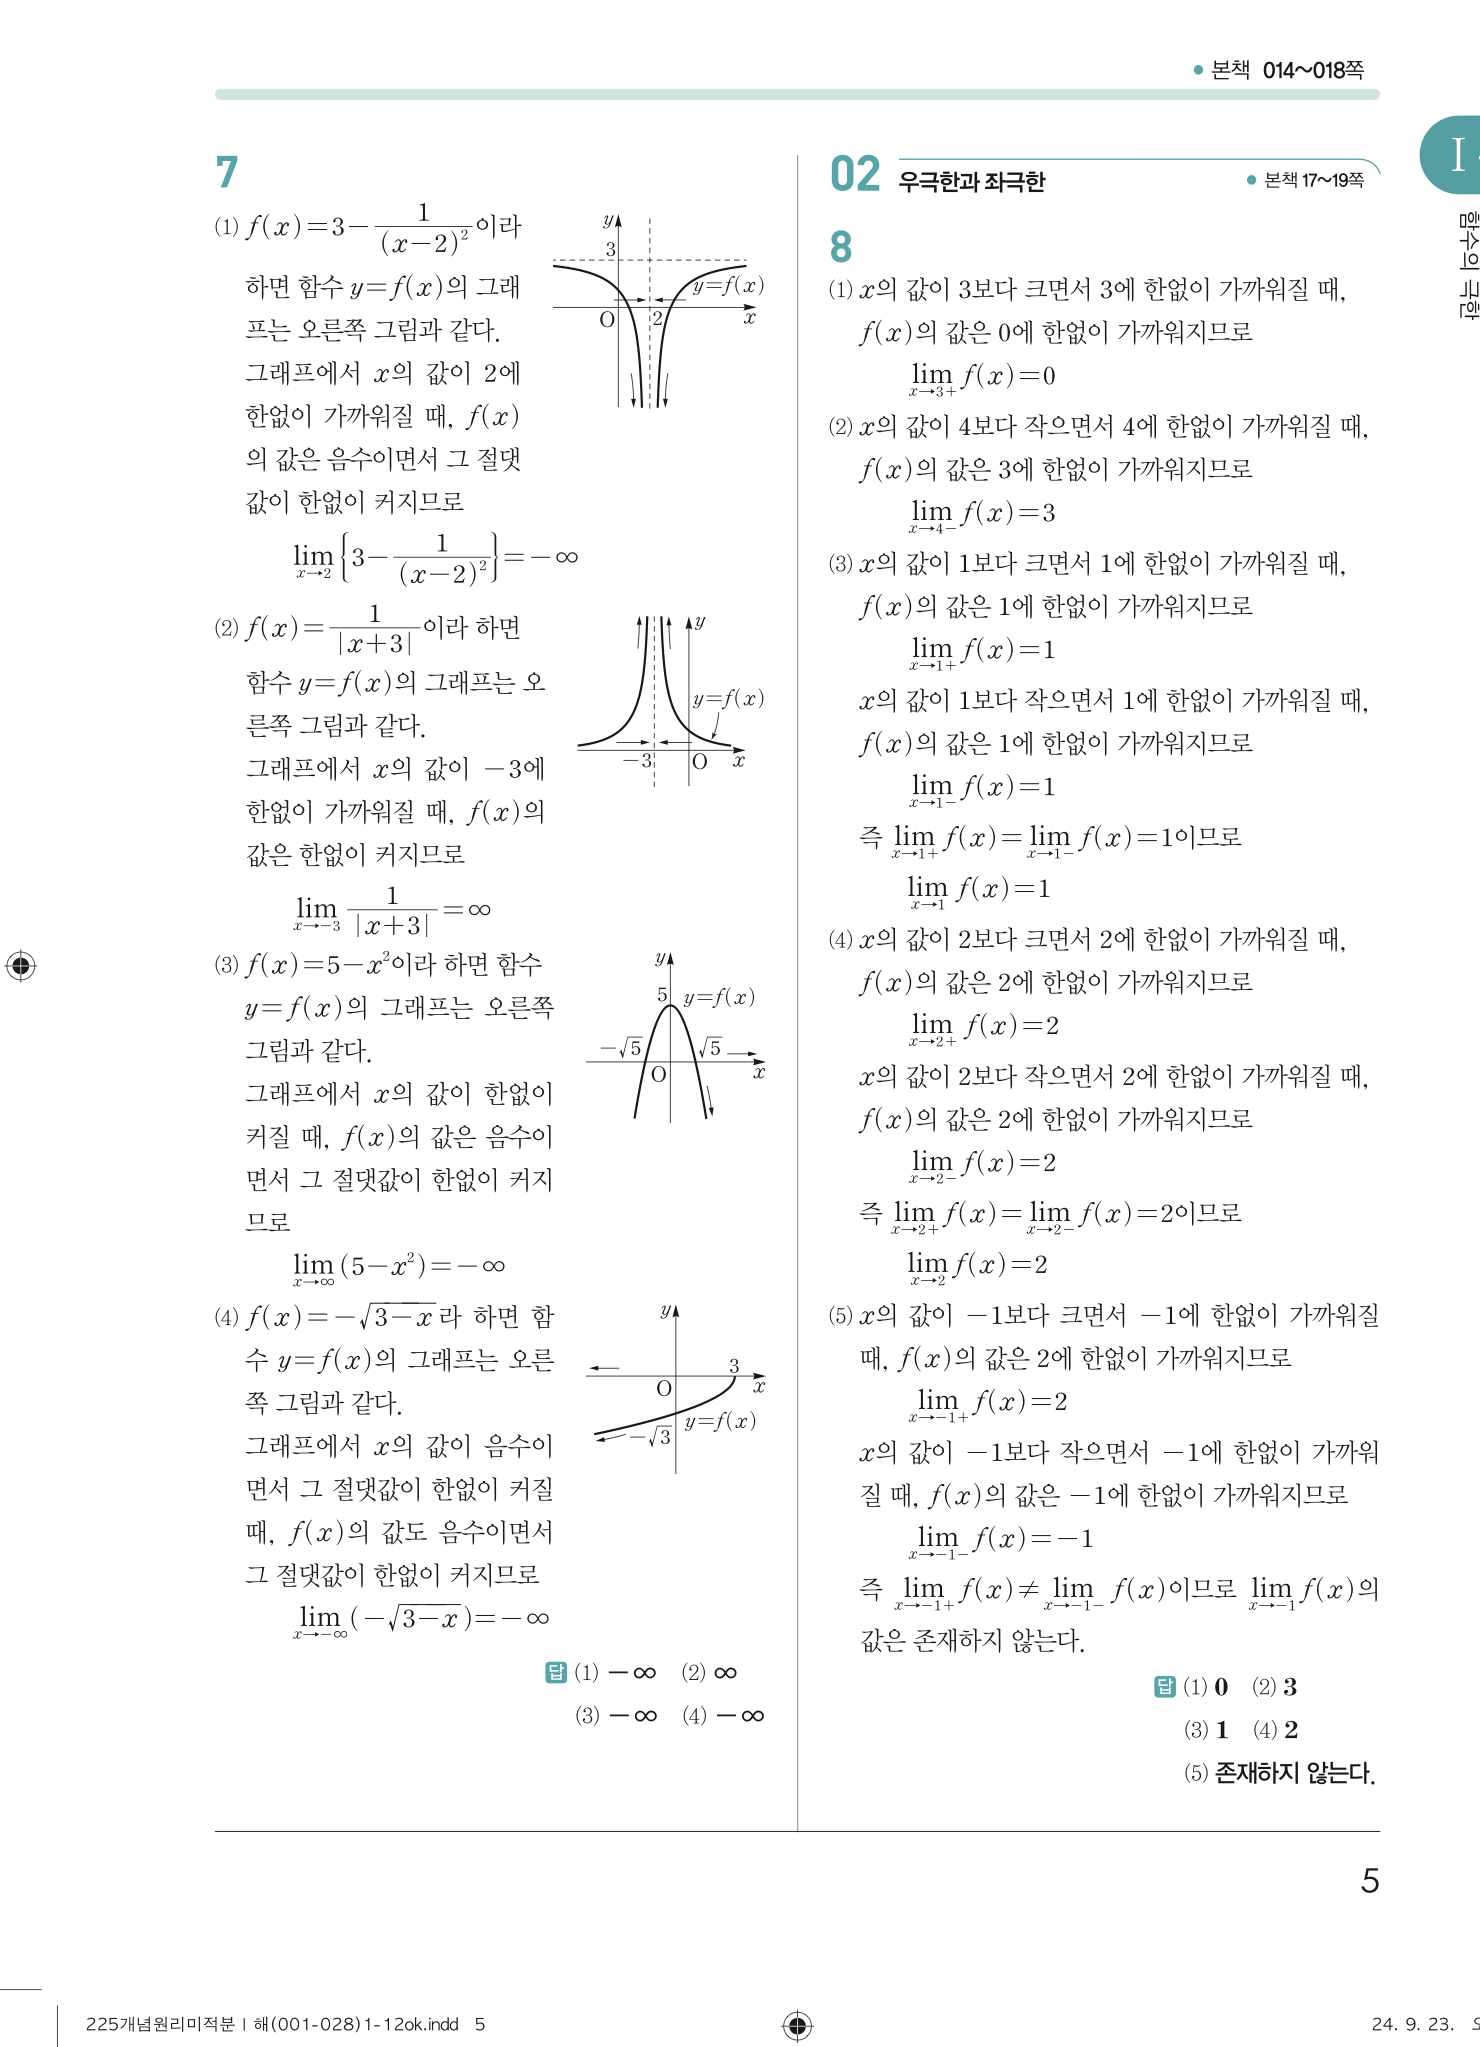 본책 014~018쪽
I
함수의 극한
7
(1) f(x)=3-1/(x-2)²이라
하면 함수 y=f(x)의 그래
프는 오른쪽 그림과 같다.
그래프에서 x의 값이 2에
한없이 가까워질 때, f(x)
의 값은 음수이면서 그 절댓
값이 한없이 커지므로
lim x→2 {3-1/(x-2)²}=-∞
y
3
y=f(x)
O 2 x
(2) f(x)=1/|x+3|이라 하면
함수 y=f(x)의 그래프는 오
른쪽 그림과 같다.
그래프에서 x의 값이 -3에
한없이 가까워질 때, f(x)의
값은 한없이 커지므로
lim x→-3 1/|x+3|=∞
y
y=f(x)
-3 O x
(3) f(x)=5-x²이라 하면 함수
y=f(x)의 그래프는 오른쪽
그림과 같다.
그래프에서 x의 값이 한없이
커질 때, f(x)의 값은 음수이
면서 그 절댓값이 한없이 커지
므로
lim x→∞ (5-x²)=-∞
y
5 y=f(x)
-√5 √5
O x
(4) f(x)=-√(3-x)라 하면 함
수 y=f(x)의 그래프는 오른
쪽 그림과 같다.
그래프에서 x의 값이 음수이
면서 그 절댓값이 한없이 커질
때, f(x)의 값도 음수이면서
그 절댓값이 한없이 커지므로
lim x→-∞ (-√(3-x))=-∞
y
3
O x
y=f(x)
-√3
답 (1) -∞ (2) ∞
(3) -∞ (4) -∞
02 우극한과 좌극한 본책 17~19쪽
8
(1) x의 값이 3보다 크면서 3에 한없이 가까워질 때,
f(x)의 값은 0에 한없이 가까워지므로
lim x→3+ f(x)=0
(2) x의 값이 4보다 작으면서 4에 한없이 가까워질 때,
f(x)의 값은 3에 한없이 가까워지므로
lim x→4- f(x)=3
(3) x의 값이 1보다 크면서 1에 한없이 가까워질 때,
f(x)의 값은 1에 한없이 가까워지므로
lim x→1+ f(x)=1
x의 값이 1보다 작으면서 1에 한없이 가까워질 때,
f(x)의 값은 1에 한없이 가까워지므로
lim x→1- f(x)=1
즉 lim x→1+ f(x)=lim x→1- f(x)=1이므로
lim x→1 f(x)=1
(4) x의 값이 2보다 크면서 2에 한없이 가까워질 때,
f(x)의 값은 2에 한없이 가까워지므로
lim x→2+ f(x)=2
x의 값이 2보다 작으면서 2에 한없이 가까워질 때,
f(x)의 값은 2에 한없이 가까워지므로
lim x→2- f(x)=2
즉 lim x→2+ f(x)=lim x→2- f(x)=2이므로
lim x→2 f(x)=2
(5) x의 값이 -1보다 크면서 -1에 한없이 가까워질
때, f(x)의 값은 2에 한없이 가까워지므로
lim x→-1+ f(x)=2
x의 값이 -1보다 작으면서 -1에 한없이 가까워
질 때, f(x)의 값은 -1에 한없이 가까워지므로
lim x→-1- f(x)=-1
즉 lim x→-1+ f(x)≠lim x→-1- f(x)이므로 lim x→-1 f(x)의
값은 존재하지 않는다.
답 (1) 0 (2) 3
(3) 1 (4) 2
(5) 존재하지 않는다.
5
225개념원리미적분 I 해(001-028)1-12ok.indd 5
24. 9. 23.